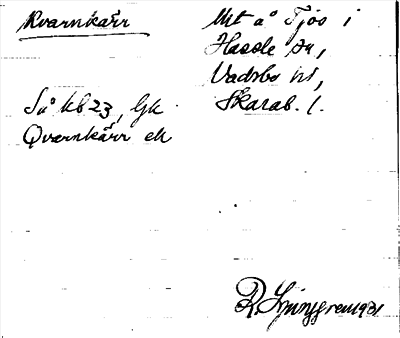 Kvarnkärr
Mt å Tjos i
Hassle sn,
Vadsbo hd,
Skarab. l.
Så kb 23, Gk
Qvarnkärr ek
R. Ljunggren 1931